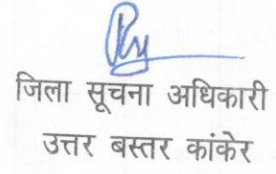 जिला सूचना अधिकारी
उत्तर बस्तर कांकेर